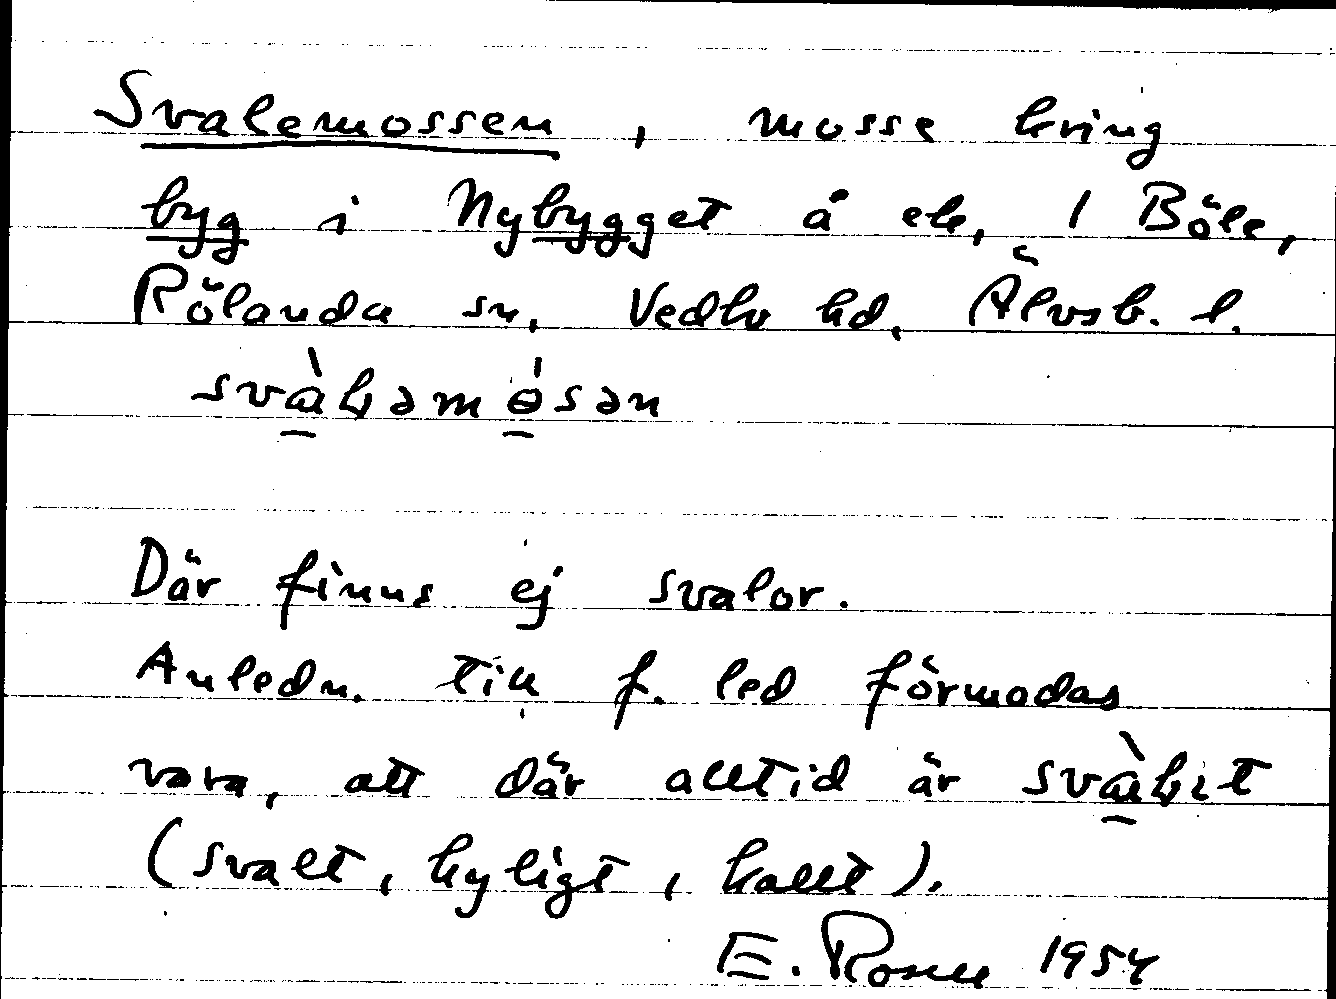 Svalemossen, mosse kring
byg i Nybygget å ek, 1 Böle,
Rölanda sn, Vedbo hd, Älvsb. l.
Där finns ej svalor.
Anledn. till f. led förmodas
vara, att där alltid är
(svalt, kyligt, kallt).
E. 1954